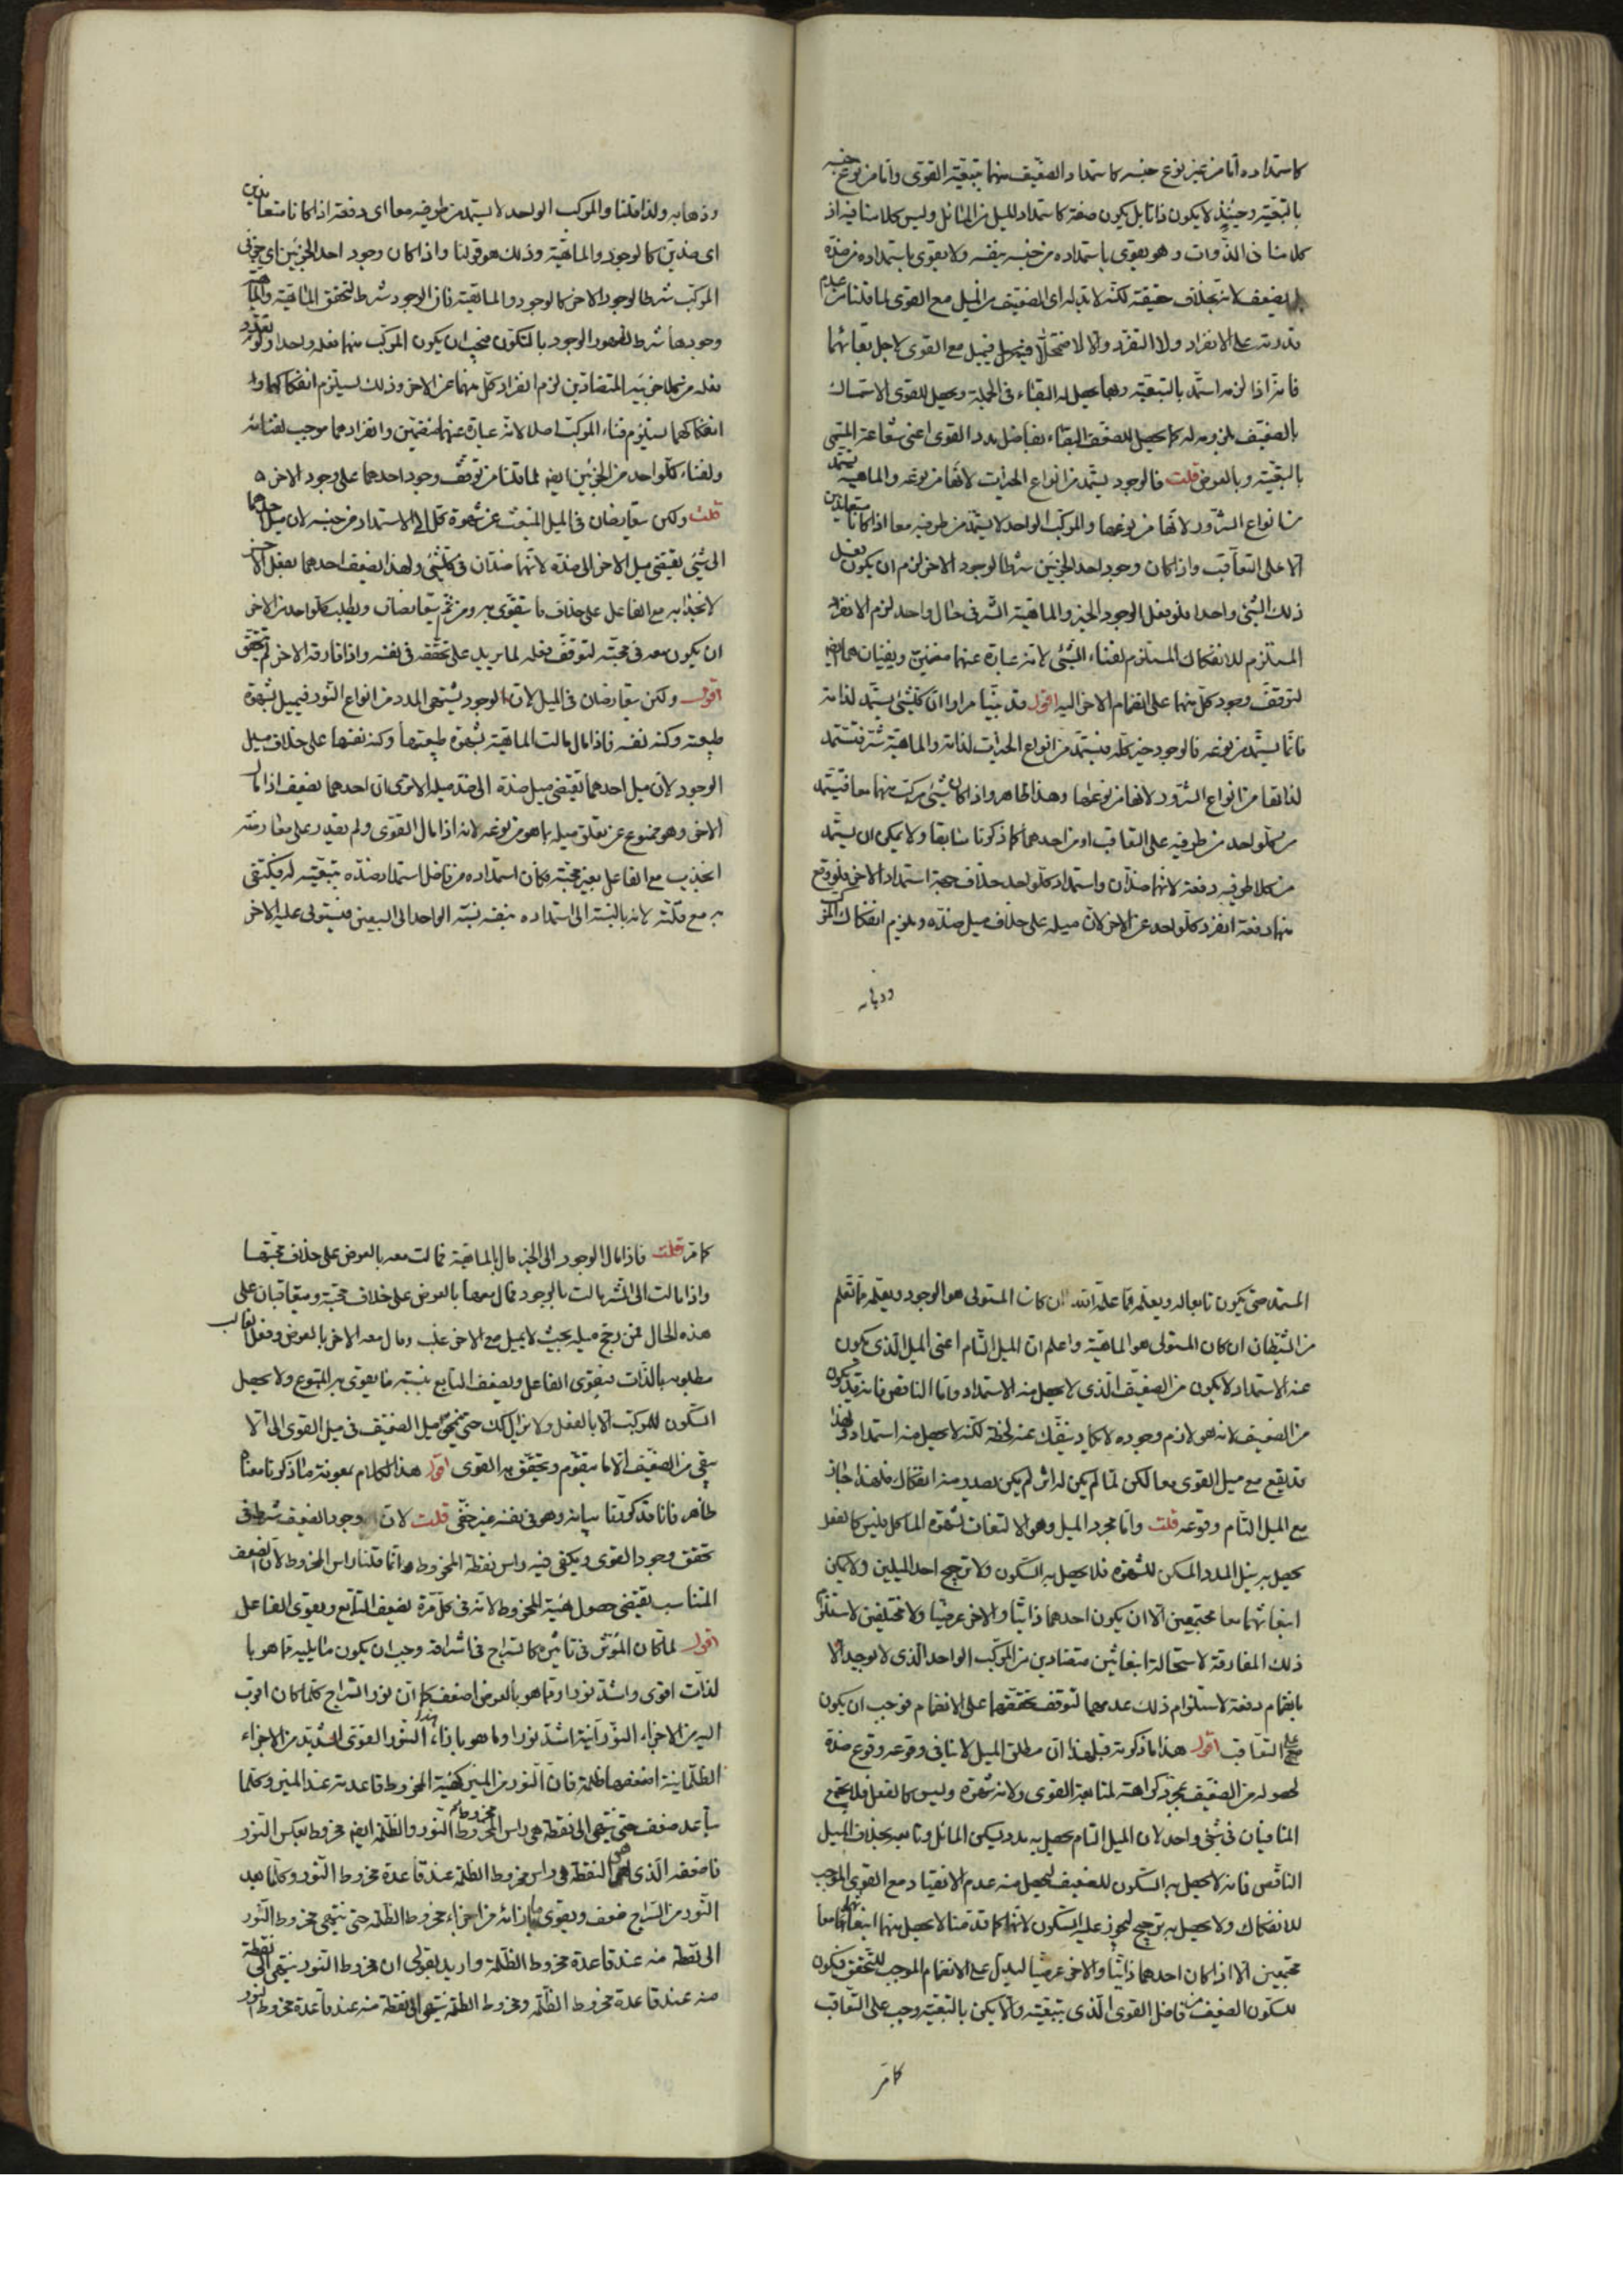 كاستمداده اما من غير نوع جنسه كاستمداد الضعيف منهما بتبعية القوى واما من نوع جنسه
بالتبعية وحينئذ لا يكون ذاتا بل يكون صفة كاستمداد للميل من المماثل وليس كلامنا فيه اذ
كلامنا فى الذوات وهو يقوى باستمداده من جنسه بنفسه ولا يقوى باستمداده من ضده
بل يضعف لانه بخلاف حقيقته لكنه لا بد له اى الضعيف من الميل مع القوى لما قلنا من عدم
قدرته على الانفراد ولا التفرد والا لاضمحلا فيميل مع القوى لاجل بقائهما
فانه اذا لزمه استمد بالتبعية وبما يحصل له البقاء فى الجملة ويحصل للقوى الاستمساك
بالضعيف بلزومه له كما يحصل للضعيف البقاء بفاضل مدد القوى اعنى شعاعه المسمى
بالتبعية وبالعرض قلت فالوجود يستمد من انواع الخيرات لانها من نوعه والماهية تستمد
من انواع الشرور لانها من نوعها والمركب الواحد لا يستمد من طرفيه معا اذا كانا متعاندين
الا على التعاقب واذا كان وجود احد الجزئين شرطا لوجود الاخر لزم ان يكون فعل
ذلك الشئ واحدا فلو فعل الوجود الخير والماهية الشر فى حال واحد لزم الانفراد
المستلزم للانفكاك المستلزم لفناء الشئ لانه عبارة عنهما منضمين ويفنيان هما ايضا
لتوقف وجود كل منهما على انضمام الاخر اليه اقول قد بينا مرارا ان كل شئ يستمد لذاته
فانما يستمد من نوعه فالوجود خير كله فيستمد من انواع الخيرات لذاته والماهية شر فتستمد
لذاتها من انواع الشرور لانها من نوعها وهذا ظاهر واذا كان شئ مركب منهما معا فيستمد
من كل واحد من طرفيه على التعاقب او من احدهما كما ذكرنا سابقا ولا يمكن ان يستمد
من كلا طرفيه دفعة لانهما ضدان واستمداد كل واحد خلاف جهة استمداد الاخر فلو وقع
منهما دفعة انفرد كل واحد عن الاخر لان ميله على خلاف ميل ضده ويلزم انفكاك المركب
وذهابه
وذهابه ولذا قلنا والمركب الواحد لا يستمد من طرفيه معا اى دفعة اذا كانا متعاندين
اى ضدين كالوجود والماهية وذلك هو قولنا واذا كان وجود احد الجزئين اى جزئى
المركب شرطا لوجود الاخر كالوجود والماهية فان الوجود شرط لتحقق الماهية والماهية
وجودها شرط لظهور الوجود بالتكون فيجب ان يكون المركب منهما فعله واحدا ولو تعدد
فعله من كلا جزئيه المتضادين لزم انفراد كل منهما عن الاخر وذلك يستلزم انفكاكهما و
انفكاكهما يستلزم فناء المركب اصلا لانه عبارة عنهما منضمين وانفرادهما موجب لفنائه
ولفناء كل واحد من الجزئين ايضا لما قلنا من توقف وجود احدهما على وجود الاخر
قلت ولكن يتعارضان فى الميل المنبعث عن شهوة كل الى الاستمداد من جنسه لان ميل احدهما
الى شئ يقتضى ميل الاخر الى ضده لانهما ضدان فى كل شئ ولهذا يضعف احدهما بفعل الاخر
لانجذابه مع الفاعل على خلاف ما يتقوى به ومن ثم يتعارضان ويطلب كل واحد من الاخر
ان يكون معه فى محبته لتوقف فعله لما يريد على تحققه فى نفسه واذا فارقه الاخر لم يتحقق
اقول ولكن يتعارضان فى الميل لان الوجود يشتهى المدد من انواع النور فيميل بشهوة
طبيعته وكنه نفسه فاذا مال مالت الماهية بشهوة طبيعتها وكنه نفسها على خلاف ميل
الوجود لان ميل احدهما يقتضى ميل ضده الى ضد ميله الا ترى ان احدهما يضعف اذا مال
الاخر وهو ممنوع عن تعلق ميله بما هو من نوعه لانه اذا مال القوى ولم يقدر على معارضته
انجذب مع الفاعل بغير محبته وكان استمداده من فاضل استمداد ضده بتبعيته له فيكتفى
به مع قلته لانه بالنسبة الى استمداده بنفسه نسبة الواحد الى السبعين فيستولى عليه الاخر
المستمد حتى يكون تابعا له ويعلمه مما علمه الله ان كان المستولى هو الوجود ويعلمه ما تعلم
من الشيطان ان كان المستولى هو الماهية واعلم ان الميل التام اعنى الميل الذى يكون
عنه الاستمداد لا يكون من الضعيف الذى لا يحصل منه الاستمداد واما الناقص فانه قد يكون
من الضعيف لانه هو لازم وجوده لا يكاد ينفك عنه لحظة لكنه لا يحصل منه استمداد ولهذا
قد يقع مع ميل القوى معا لكن لما لم يكن له اثر لم يكن يصدر منه انفكاك فلهذا جاز
مع الميل التام وقوعه قلت واما مجرد الميل وهو الالتفات لشهوة الماكل فليس كالفعل
يحصل به نيل المدد المسكن للشهوة فلا يحصل به السكون ولا ترجح احد الميلين ولا يمكن
انبعاثهما معا مجتمعين الا ان يكون احدهما ذاتيا والاخر عرضيا ولا مختلفين لاستلزام
ذلك المفارقة لاستحالة انبعاثين متضادين من المركب الواحد الذى لا يوجد الا
بانضمام دفعة لاستلزام ذلك عدمهما لتوقف تحققهما على الانضمام فوجب ان يكون
على التعاقب اقول هذا ما ذكرته قبل هذا ان مطلق الميل لا ينافى وقوعه وقوع ضده
لحصوله من الضعيف بمجرد كراهته لمتابعة القوى ولانه شهوة وليس كالفعل فلا يجتمع
المتنافيان فى شئ واحد لان الميل التام يحصل به مدد يسكن المائل وتابعه بخلاف الميل
الناقص فانه لا يحصل به السكون للضعيف ليحصل منه عدم الانقياد مع القوى الموجب
للانفكاك ولا يحصل به ترجح ليجوز عليه السكون لانهما كما قدمنا لا يحصل منهما انبعاثهما معا
مجتمعين الا اذا كان احدهما ذاتيا والاخر عرضيا ليدل على الانضمام الموجب للتحقق فيكون
سكون الضعيف من فاضل القوى الذى بتبعيته والا يكن بالتبعية وجب على التعاقب
كما مر
كما مر قلت فاذا مال الوجود الى الخير مال بالماهية فمالت معه بالعرض على خلاف محبتها
واذا مالت الى الشر مالت بالوجود فمال معها بالعرض على خلاف محبته ويتعاقبان على
هذه الحال فمن رجح ميله بحيث لا يميل مع الاخر غلب ومال معه الاخر بالعرض وفعل الغالب
مطلوبه بالذات فيقوى الفاعل ويضعف التابع بنسبة ما يقوى به المتبوع ولا يحصل
السكون للمركب الا بالفعل ولا يزال كذلك حتى ينمحى ميل الضعيف فى ميل القوى الى الا
يبقى من الضعيف الا ما يتقوم ويتحقق به القوى اقول هذا الكلام بمعونة ما ذكرنا معناه
ظاهر فانا قد كررنا بيانه وهو فى نفسه غير خفى قلت لان وجود الضعيف شرط فى
تحقق وجود القوى ويكفى فيه راس نقطة المخروط وانما قلنا راس المخروط لان الضعف
المتناسب يقتضى حصول هيئة المخروط لانه فى كل مرة يضعف التابع ويقوى الفاعل
اقول لما كان المؤثر فى تاثيره كالسراج فى اشراقه وجب ان يكون ما يليه مما هو با
لذات اقوى واشد نورا ومما هو بالعرض اضعف كما ان نور السراج كلما كان اقرب
اليه من الاجزاء النورانية اشد نورا وما هو بازاء هذا النور القوى الشديد من الاجزاء
الظلمانية اضعفها ظلمة فان النور من المنير كهيئة المخروط قاعدته عند المنير وكلما
تباعد ضعف حتى ينتهى الى نقطة هى راس المخروط مخروط النور والظلمة ايضا مخروط بعكس النور
فاضعفه الذى هو النقطة هى راس مخروط الظلمة عند قاعدة مخروط النور وكلما بعد
النور من السراج ضعف ويقوى ما بازائه من اجزاء مخروط الظلمة حتى ينتهى مخروط النور
الى نقطة منه عند قاعدة مخروط الظلمة واريد بقولى ان مخروط النور ينتهى الى نقطة
منه عند قاعدة مخروط الظلمة ومخروط الظلمة ينتهى الى نقطة منه عند قاعدة مخروط النور